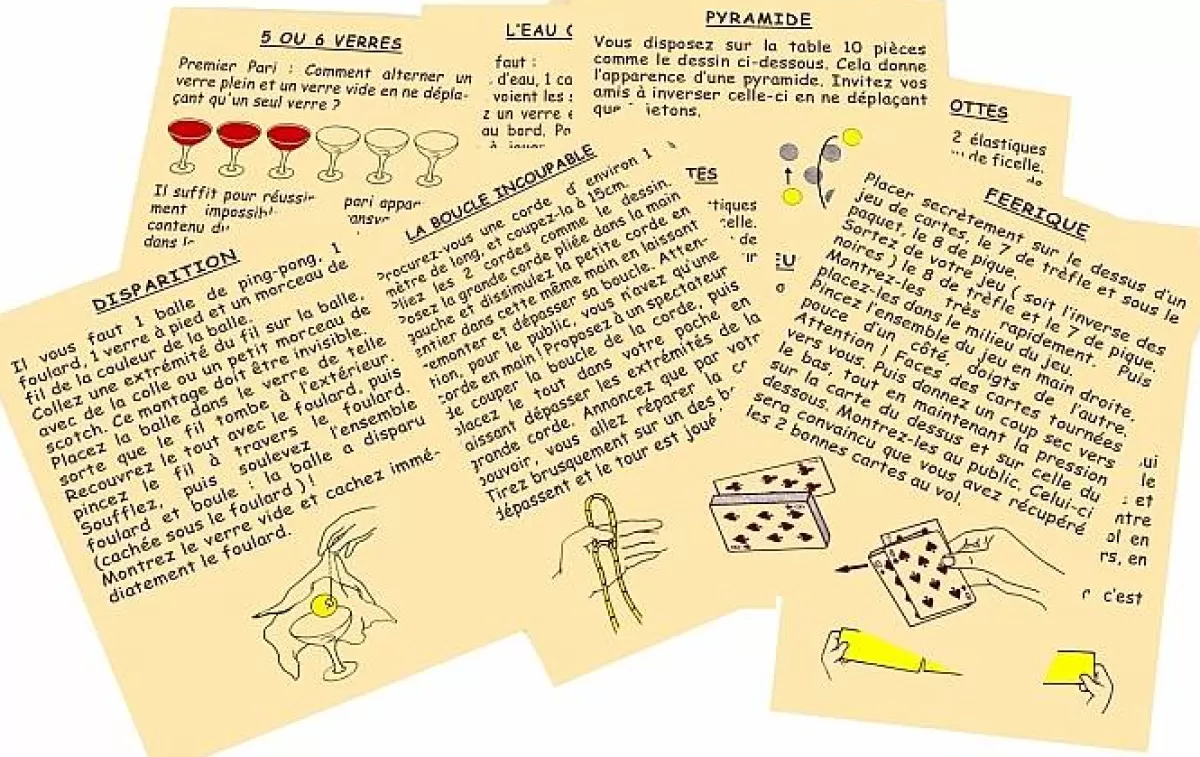 5 OU 6 VERRES
Premier Pari : Comment alterner un
verre plein et un verre vide en ne dépla-
çant qu'un seul verre ?
Il suffit pour réussir
pari appar
ment
contenu du
dans le
L'EAU
faut :
d'eau, 1
voient les
z un verre
au bord.
à jouer
PYRAMIDE
Vous disposez sur la table 10 pièces
comme le dessin ci-dessous. Cela donne
l'apparence d'une pyramide. Invitez vos
amis à inverser celle-ci en ne déplaçant
que jetons.
OTTES
2 élastiques
de ficelle.
DISPARITION
Il vous faut 1 balle de ping-pong, 1
foulard, 1 verre à pied et un morceau de
fil de la couleur de la balle.
Collez une extrémité du fil sur la balle,
avec de la colle ou un petit morceau de
scotch. Ce montage doit être invisible.
Placez la balle dans le verre de telle
sorte que le fil tombe à l'extérieur.
Recouvrez le tout avec le foulard, puis
pincez le fil à travers le foulard.
Soufflez, puis soulevez l'ensemble
foulard et boule : la balle a disparu
(cachée sous le foulard) !
Montrez le verre vide et cachez immé-
diatement le foulard.
LA BOUCLE INCOUPABLE
Procurez-vous une corde d'environ 1
mètre de long, et coupez-la à 15cm.
pliez les 2 cordes comme le dessin.
posez la grande corde pliée dans la main
gauche et dissimulez la petite corde en
entier dans cette même main en laissant
remonter et dépasser sa boucle. Atten-
tion, pour le public, vous n'avez qu'une
corde en main ! Proposez à un spectateur
de couper la boucle de la corde, puis
placez le tout dans votre poche en
laissant dépasser les extrémités de la
grande corde. Annoncez que par votr
pouvoir, vous allez réparer la c
Tirez brusquement sur un des b
dépassent et le tour est joué
TES
tiques
celle.
de
ur
EU
FEERIQUE
Placer secrètement sur le dessus d'un
jeu de cartes, le 7 de trèfle et sous le
paquet, le 8 de pique.
Sortez de votre jeu ( soit l'inverse des
noires ) le 8 de trèfle et le 7 de pique.
Montrez-les " très rapidement ". Puis
placez-les dans le milieu du jeu.
Pincez l'ensemble du jeu en main droite.
pouce d'un côté, doigts de l'autre.
Attention ! Faces des cartes tournées
vers vous. Puis donnez un coup sec vers
le bas, tout en maintenant la pression
sur la carte du dessus et sur celle du
dessous. Montrez-les au public. Celui-ci
sera convaincu que vous avez récupéré
les 2 bonnes cartes au vol.
ui
le
: et
ntre
ol en
rs, en
c'est